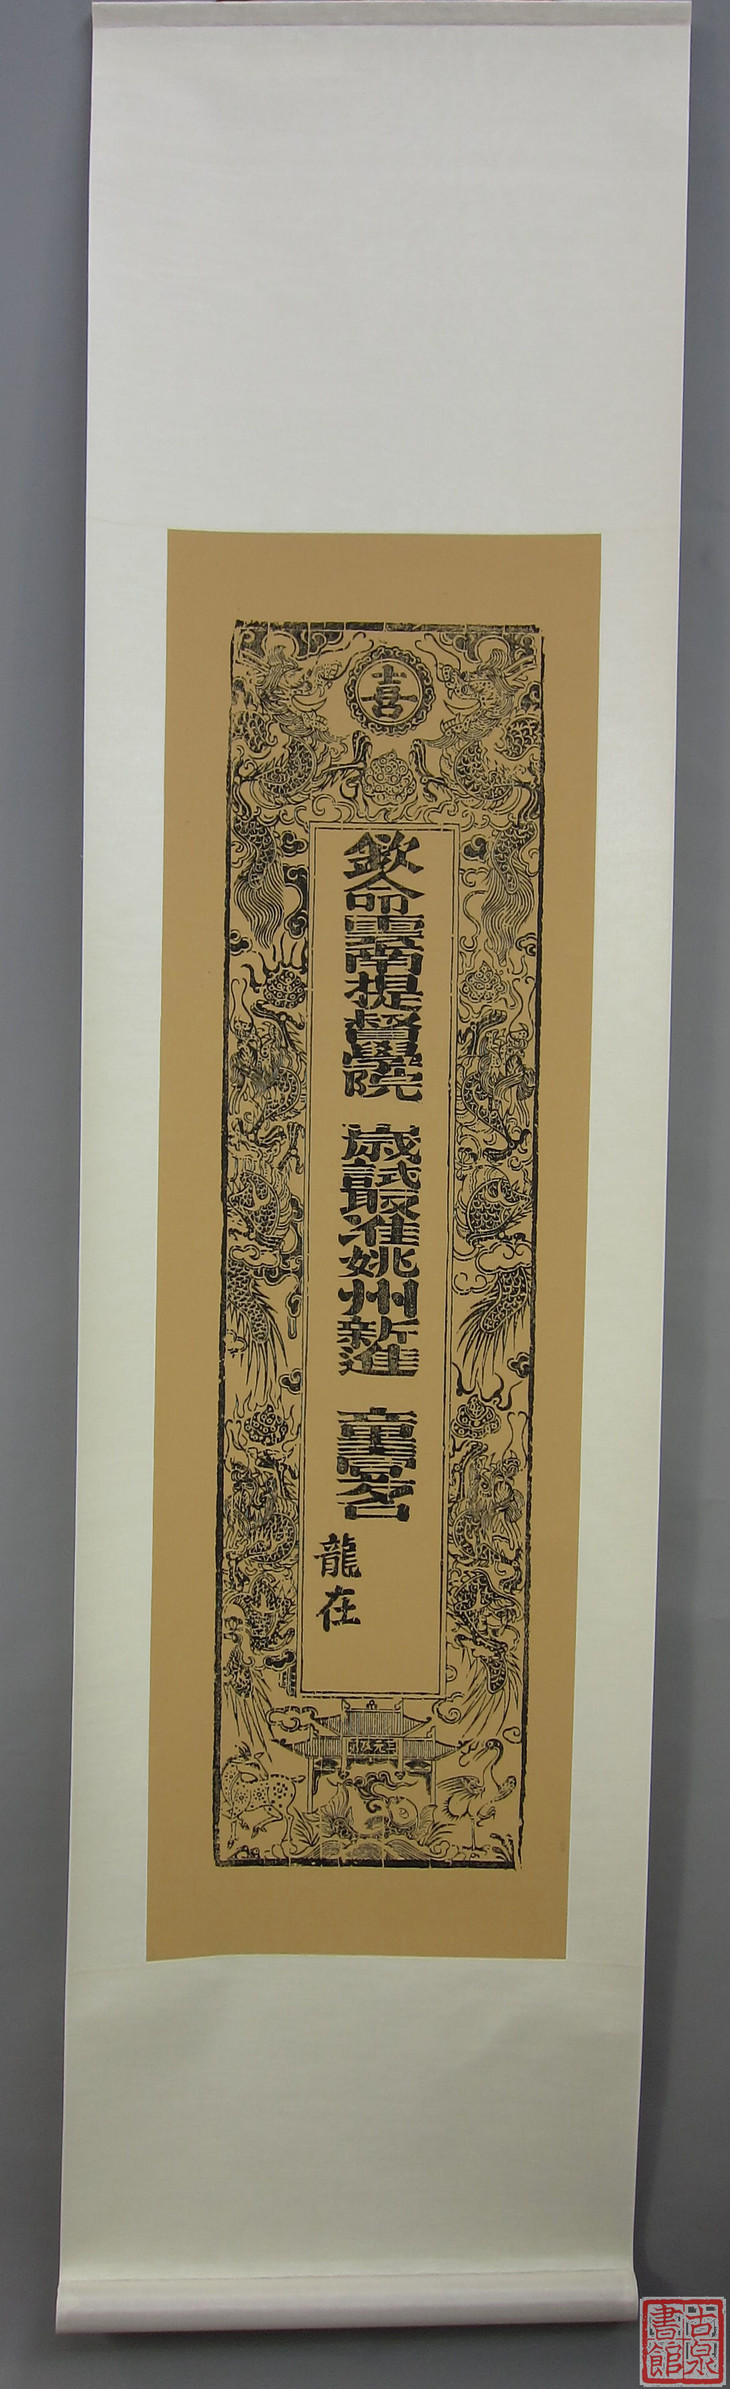 喜
欽命雲南提督學院
歲試取准姚州新進
童壹名
龍在
三元
古泉書館